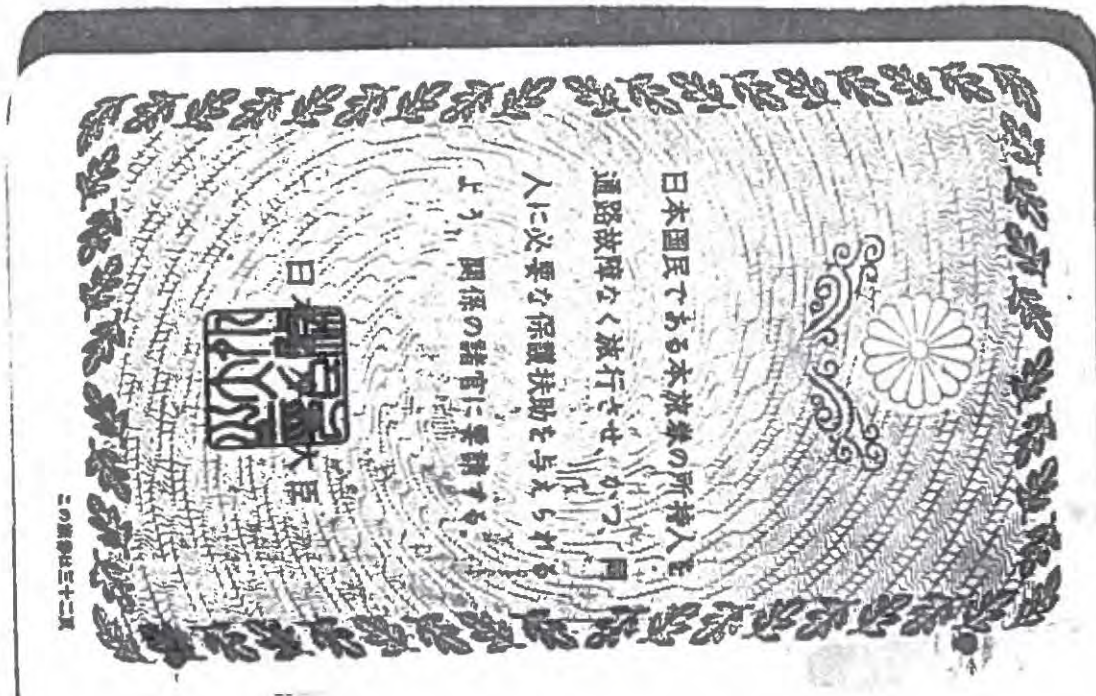 日本国民である本旅券の所持人を
通路故障なく旅行させ、かつ、同
人に必要な保護扶助を与えられる
よう、関係の諸官に要請する。
日 大臣
この旅券は三十二頁